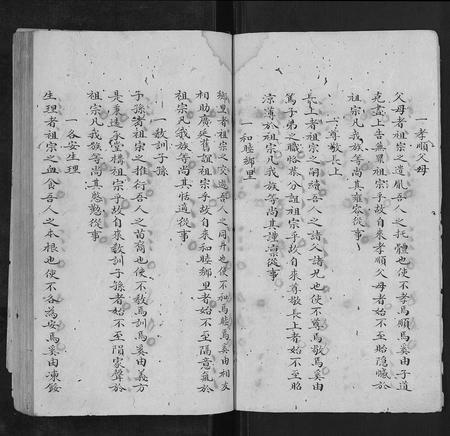 一孝順父母
父母者祖宗之遺胤吾人之托體也使不孝焉順焉奚由子道
克盡上告無累祖宗乎故自來孝順父母者始不至貽隱慽於
祖宗凡我族等尚其雍容從事
一尊敬長上
長上者祖宗之嗣續吾人之諸父諸兄也使不尊焉敬焉奚由
篤子弟之職恪恭分誼祖宗乎故自來尊敬長上者始不至貽
涼薄於祖宗凡我族等尚其謹凜從事
一和睦鄉里
鄉里者祖宗之交遊吾人之同井也使不和焉睦焉奚由相友
相助廣延舊誼祖宗乎故自來和睦鄉里者始不至隔意氣於
祖宗凡我族等尚其恬適從事
一教訓子孫
子孫者祖宗之推衍吾人之苗裔也使不教焉訓焉奚由義方
是承堂構祖宗乎故自來教訓子孫者始不至隕家聲於
祖宗凡我族等尚其懃懇從事
一各安生理
生理者祖宗之血食吾人之本根也使不各為安焉奚由凍餒